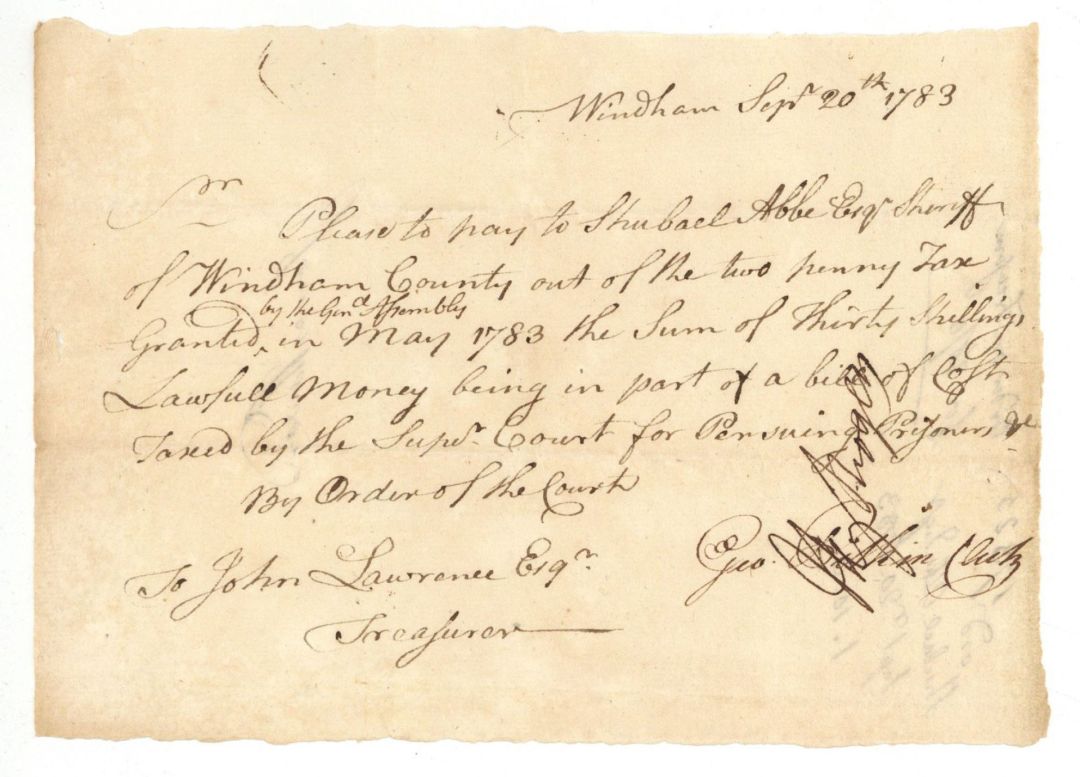 Windham Sepr 20th 1783
Sr
Please to pay to Shubael Abbe Esqr Sheriff
of Windham County out of the two penny Taxe
by the Genl Assembly
Granted ^ in May 1783 the Sum of Thirty Shillings
Lawfull Money being in part of a bill of Cost
Taxed by the Supr Court for Persuing Prisoners &c
By Order of the Court
Geo Clerk
To John Lawrence Esqr
Treasurer